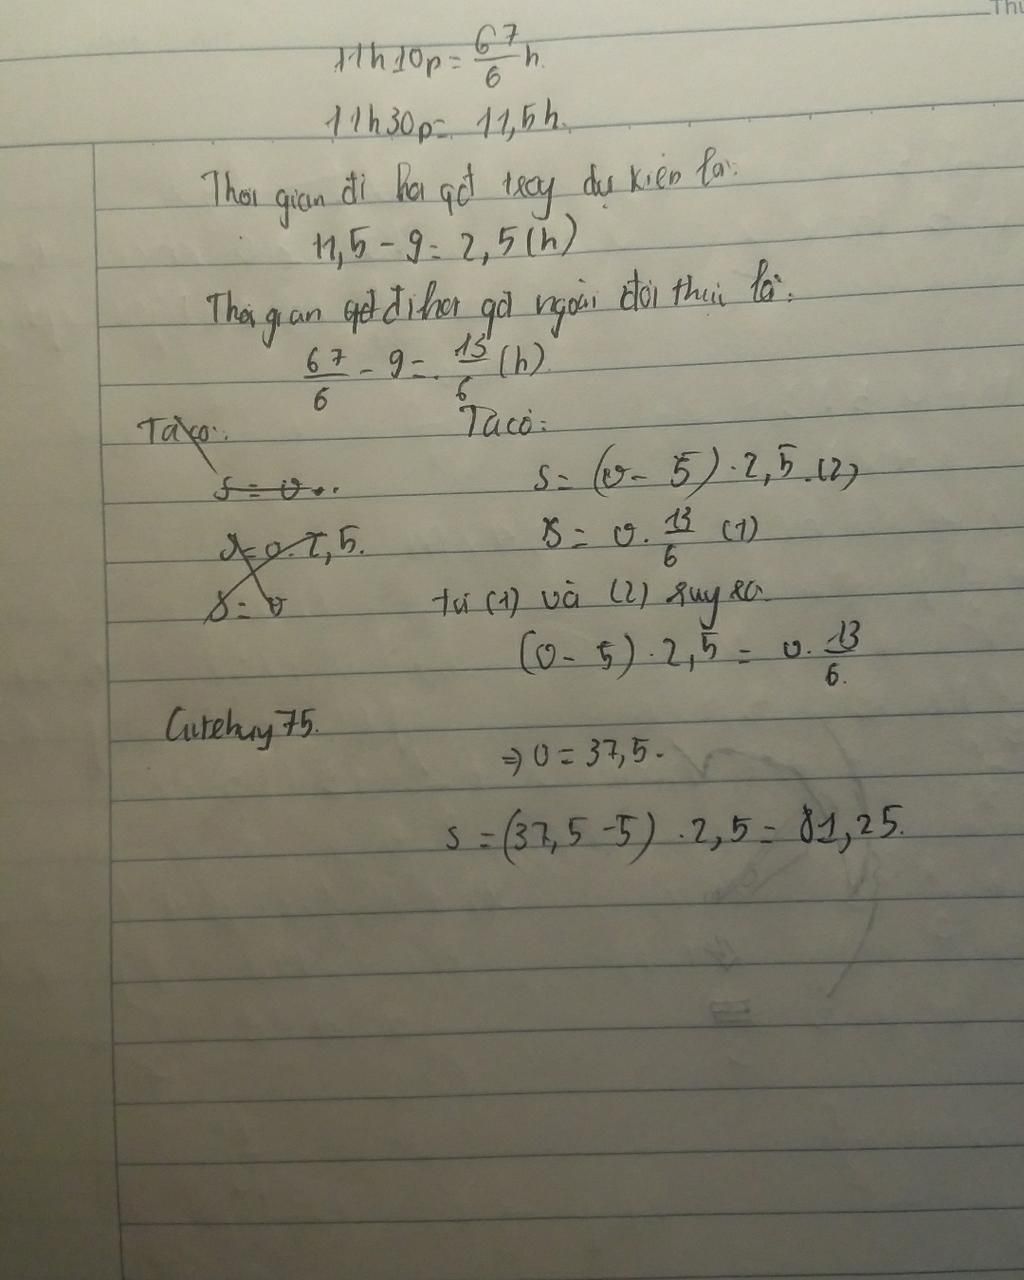 Thứ
11h10p = 67/6 h.
11h30p = 11,5h.
Thời gian đi theo dự kiến là:
11,5 - 9 = 2,5 (h)
Thời gian đi ngoài đời thực là:
67/6 - 9 = 13/6 (h)
Ta có: Ta có:
s = v.. s = (v - 5) . 2,5 (2)
s = v. 2,5. s = v . 13/6 (1)
s = v từ (1) và (2) suy ra
(v - 5) . 2,5 = v . 13/6.
Cutehuy75.
⇒ v = 37,5.
s = (37,5 - 5) . 2,5 = 81,25.